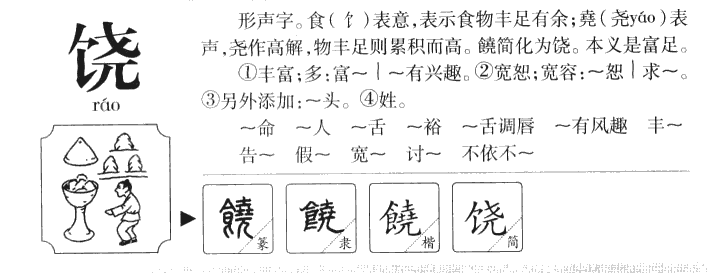 饶
ráo
形声字。食(饣)表意,表示食物丰足有余;堯(尧yáo)表
声,尧作高解,物丰足则累积而高。饒简化为饶。本义是富足。
①丰富;多:富~｜~有兴趣。②宽恕;宽容:~恕｜求~。
③另外添加:~头。④姓。
~命 ~人 ~舌 ~裕 ~舌调唇 ~有风趣 丰~
告~ 假~ 宽~ 讨~ 不依不~
饒 篆
饒 隶
饒 楷
饶 简